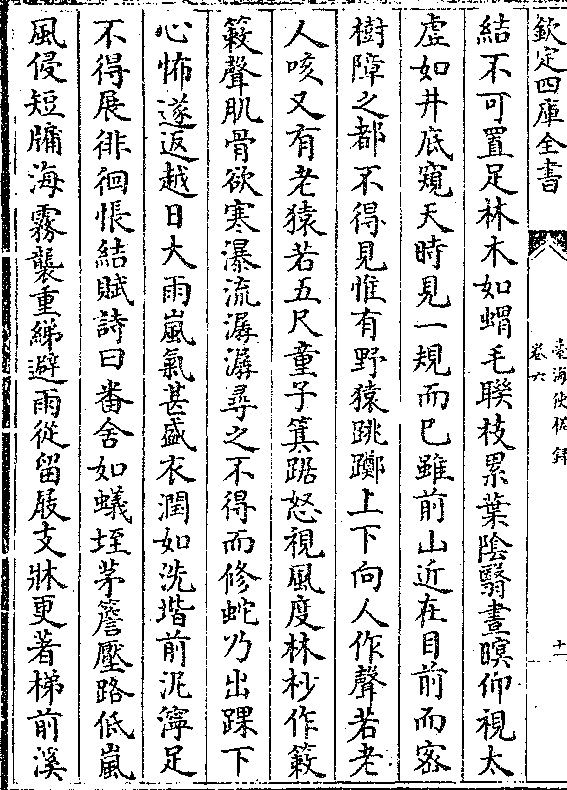 欽定四庫全書
臺海使槎錄
卷六
十一
結不可置足林木如蝟毛聯枝累葉陰翳晝暝仰視太
虛如井底窺天時見一規而已雖前山近在目前而密
樹障之都不得見惟有野猿跳躑上下向人作聲若老
人咳又有老猿若五尺童子箕踞怒視風度林杪作簌
簌聲肌骨欲寒瀑流潺潺尋之不得而修蛇乃出踝下
心怖遂返越日大雨嵐氣甚盛衣潤如洗堦前泥濘足
不得展徘徊悵結賦詩曰番舍如蟻垤茅簷壓路低嵐
風侵短牖海霧襲重綈避雨從留屐支牀更著梯前溪